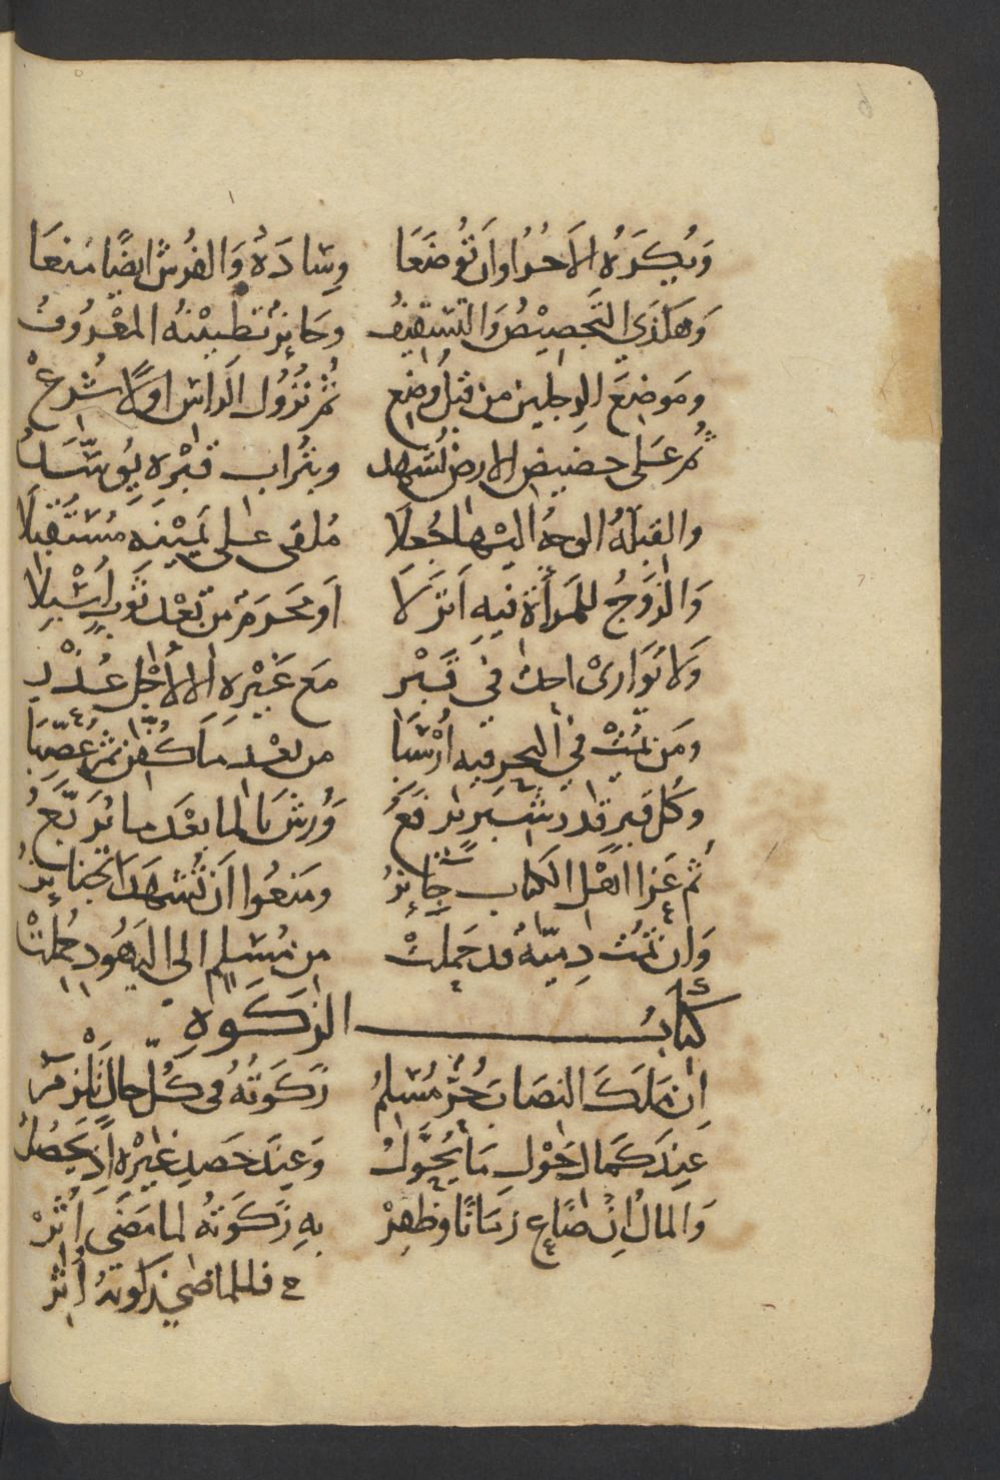 وَيُكرَهُ الآجُرُ اواَن تُوضَعَا وِسَادَةٌ وَالفُرشُ ايضًا مُنعَا
وَهَكَذي التَّجصِيْصُ وَالتسْقِيفُ وجَايزٌ تَطيِيْنُه المعْرُوفُ
ومَوضِعَ الرِجلين من قبلُ وُضِع ثُمَّ نُزُولُ الرَاسِ اولًا شُرِعْ
ثُم عَلى حضيض الارض لُيُنهد وبتُراب قبْره يُوسَّدُ
والقبلةُ الوجهُ اليْها جُعِلَا مُلقى على يَميْنهِ مُسْتَقبِلَا
وَالزوَجُ للمَرأَةِ فيهِ اَنزَلَا اَو مَحرمٌ مِن بَعْد ثَوبٍ اُسْبِلَا
وَلَا يُوَارىْ احدٌ في قَبْر مَع غَيْرهِ الا لأجْل عُذْر
ومَن يَمُتْ في البحر فيهِ اُرْسبَا من بعْد مَا كُفّن ثمّ عُصّبَا
وكُل قبر قدر شبرٍ يُرفعَُ وَرُشَّ بالما بعْدَ ما يُرَبّعَُ
ثُم عَزا اهْل الكتاب جَايزُ ومَنعُوا اَن تُشْهَد الجَنايزُ
وَان تَمُت ذِميّةٌ قد حَملتْ من مُسْلِم الى اليَهُود حُمِلتْ
كتَابُ الزكَوةِ
ان مَلَكَ النصَابَ حُرٌّ مُسْلمُ زكَوتُهُ في كُلّ حال تَلْزمُ
عِندَ كَمال حَوْلِ مَا يُحَوَّلُ وَعِندَ حَصدِ غيْرِه اِذ يَحصُلُ
وَالمالُ اِن ضَاعِ زمَانًا وظَهِرْ بهِ زكَوتهُ لما مَضَى اُثِرْ
فللماضي زكوتهُ اُثر